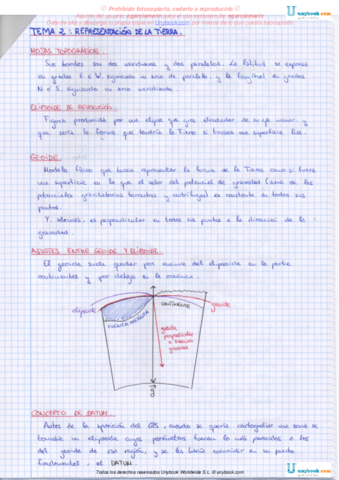 Prohibido fotocopiarlo, cederlo o reproducirlo
unybook.com
TEMA 2 : REPRESENTACIÓN DE LA TIERRA.
HOJAS TOPOGRÁFICAS.
Sus bordes son dos meridianos y dos paralelos. La latitud se expresa
en grados E o W, siguiendo un arco de paralelo, y la longitud en grados
N o S, siguiendo un arco meridiano.
ELIPSOIDE DE REVOLUCIÓN.
Figura producida por una elipse que gira alrededor de su eje menor y
que sería la forma que tendría la Tierra si tuviese una superficie lisa.
GEOIDE.
Modelo físico que busca representar la forma de la Tierra como si fuera
una superficie en la que el valor del potencial de gravedad (suma de los
potenciales gravitatorios terrestres y centrífugo) es constante en todos sus
puntos.
Y además, es perpendicular en todos sus puntos a la dirección de la
gravedad.
AJUSTES ENTRE GEOIDE Y ELIPSOIDE.
El geoide suele quedar por encima del elipsoide en la parte
continental y por debajo en la oceánica.
elipsoide
CONTINENTE
geoide
CUENCA OCEÁNICA
geoide
perpendicular
a
gravedad
CONCEPTO DE DATUM.
Antes de la aparición del GPS, cuando se quería cartografiar una zona se
buscaba un elipsoide cuyos parámetros fueran lo más parecidos a los
del geoide de esa región, y se les hacía coincidir en un punto
fundamental, el DATUM.
Todos los derechos reservados Unybook Worldwide S.L. © unybook.com
unybook.com